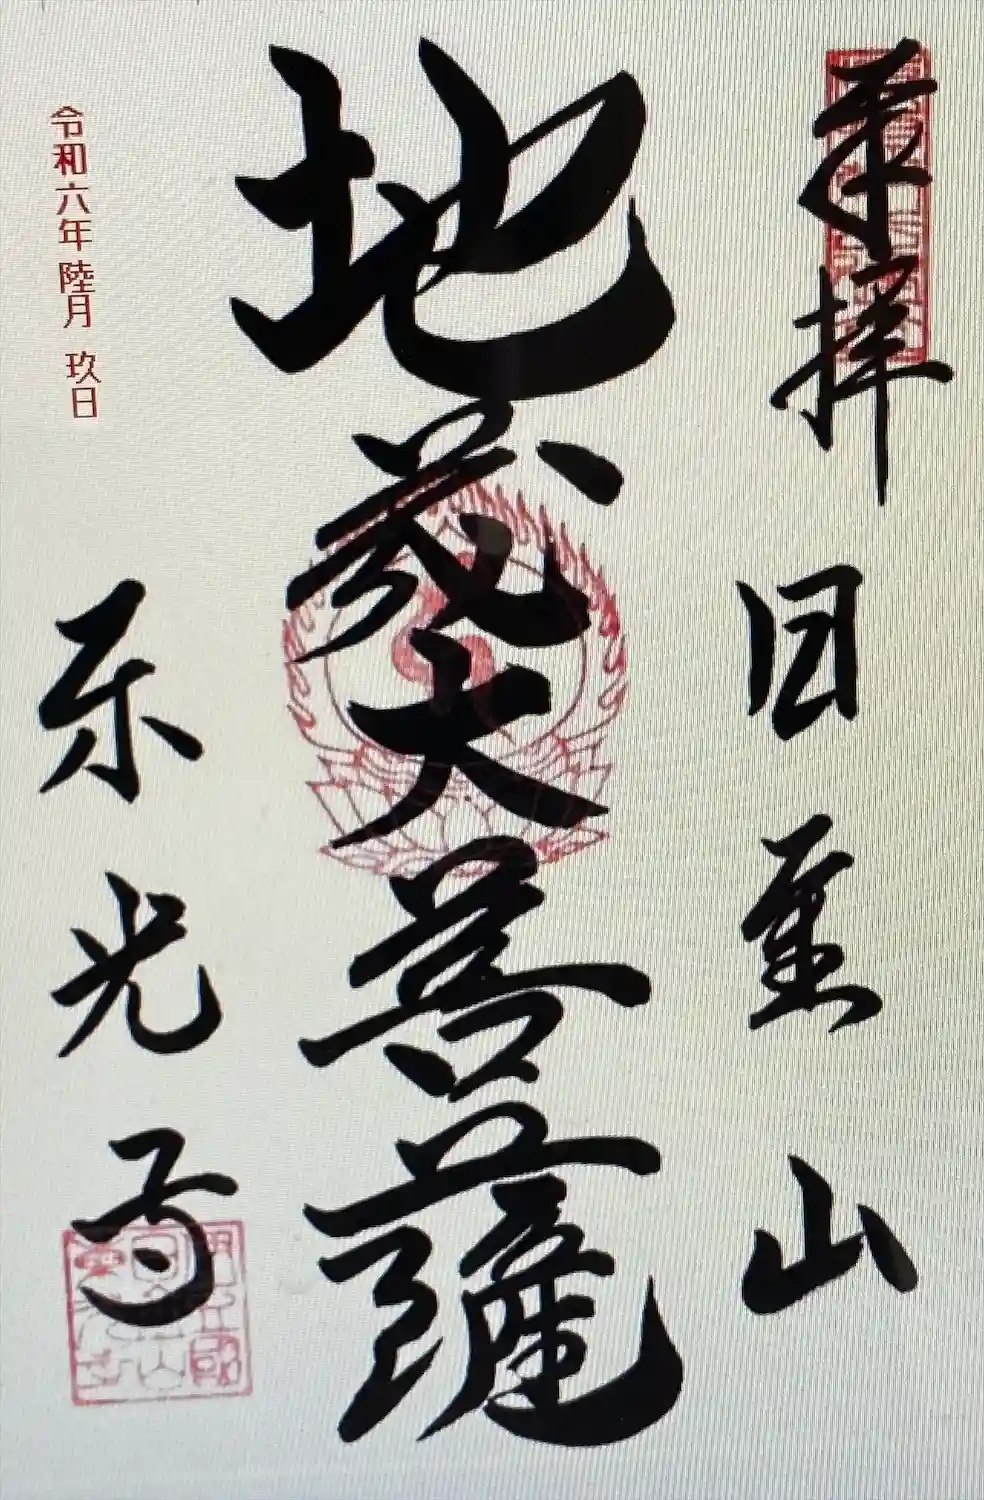 奉拝
日金山
地蔵大菩薩
東光寺
令和六年陸月玖日